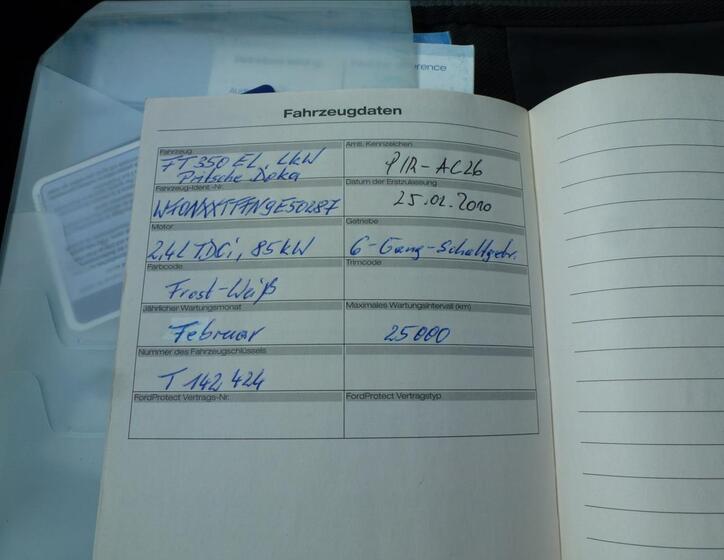 erence
Fahrzeugdaten
Fahrzeug
FT 350 EL, LKW
Pritsche Doka
Amtl. Kennzeichen
PIR-AC26
Fahrzeug-Ident.-Nr.
Datum der Erstzulassung
25.02.2010
Motor
2,4l TDCi, 85kW
Getriebe
6-Gang-Schaltgetr.
Farbcode
Frost-Weiß
Trimcode
Jährlicher Wartungsmonat
Februar
Maximales Wartungsintervall (km)
25000
Nummer des Fahrzeugschlüssels
T 142424
FordProtect Vertrags-Nr.
FordProtect Vertragstyp